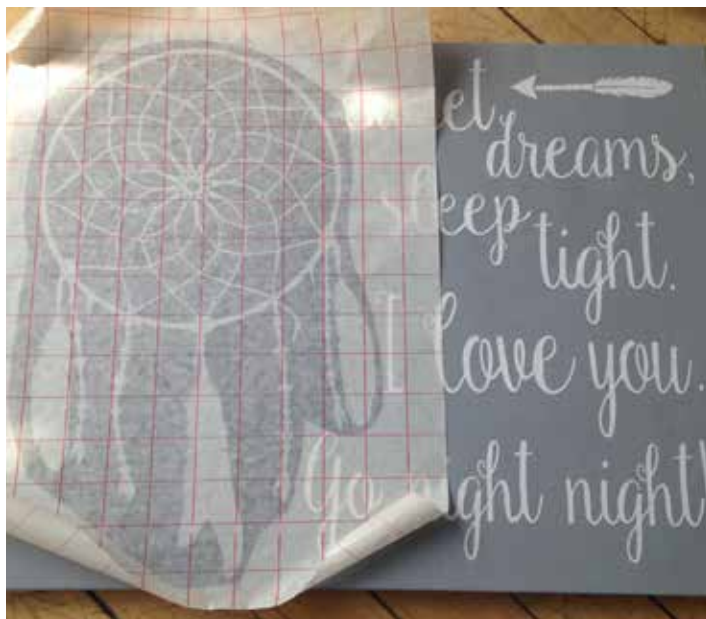 Sweet
dreams,
sleep
tight.
I love you.
Go night night!